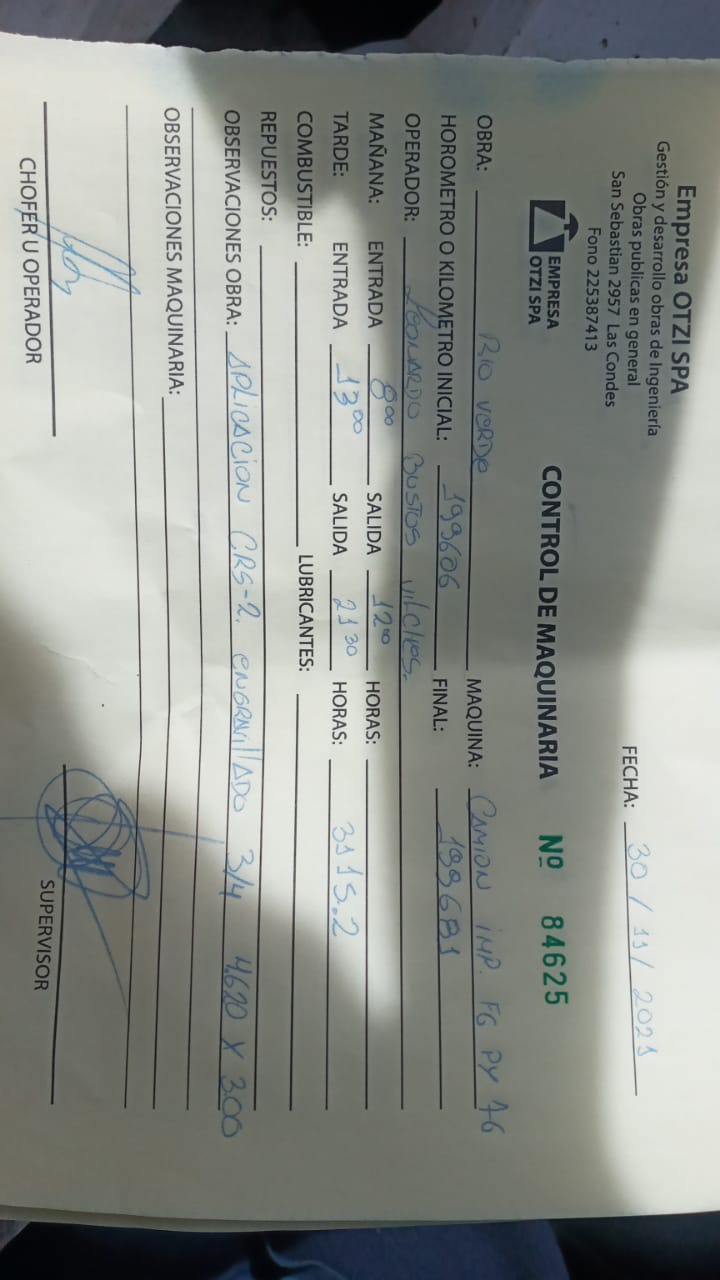 Empresa OTZI SPA
Gestión y desarrollo obras de Ingeniería
Obras publicas en general
San Sebastian 2957 Las Condes
Fono 225387413
FECHA: 30 / 11 / 2021
EMPRESA
OTZI SPA
CONTROL DE MAQUINARIA Nº 84625
OBRA: RIO VERDE MAQUINA: CAMION IMP. FG PY 76
HOROMETRO O KILOMETRO INICIAL: 199606 FINAL: 199681
OPERADOR: LEONARDO BUSTOS VILCHES.
MAÑANA: ENTRADA 800 SALIDA 1200 HORAS:
TARDE: ENTRADA 1300 SALIDA 21 30 HORAS: 3115.2
COMBUSTIBLE: LUBRICANTES:
REPUESTOS:
OBSERVACIONES OBRA: APLICACION CRS-2. ENGRAVILLADO 3/4 4.620 X 3.00
OBSERVACIONES MAQUINARIA:
CHOFER U OPERADOR SUPERVISOR